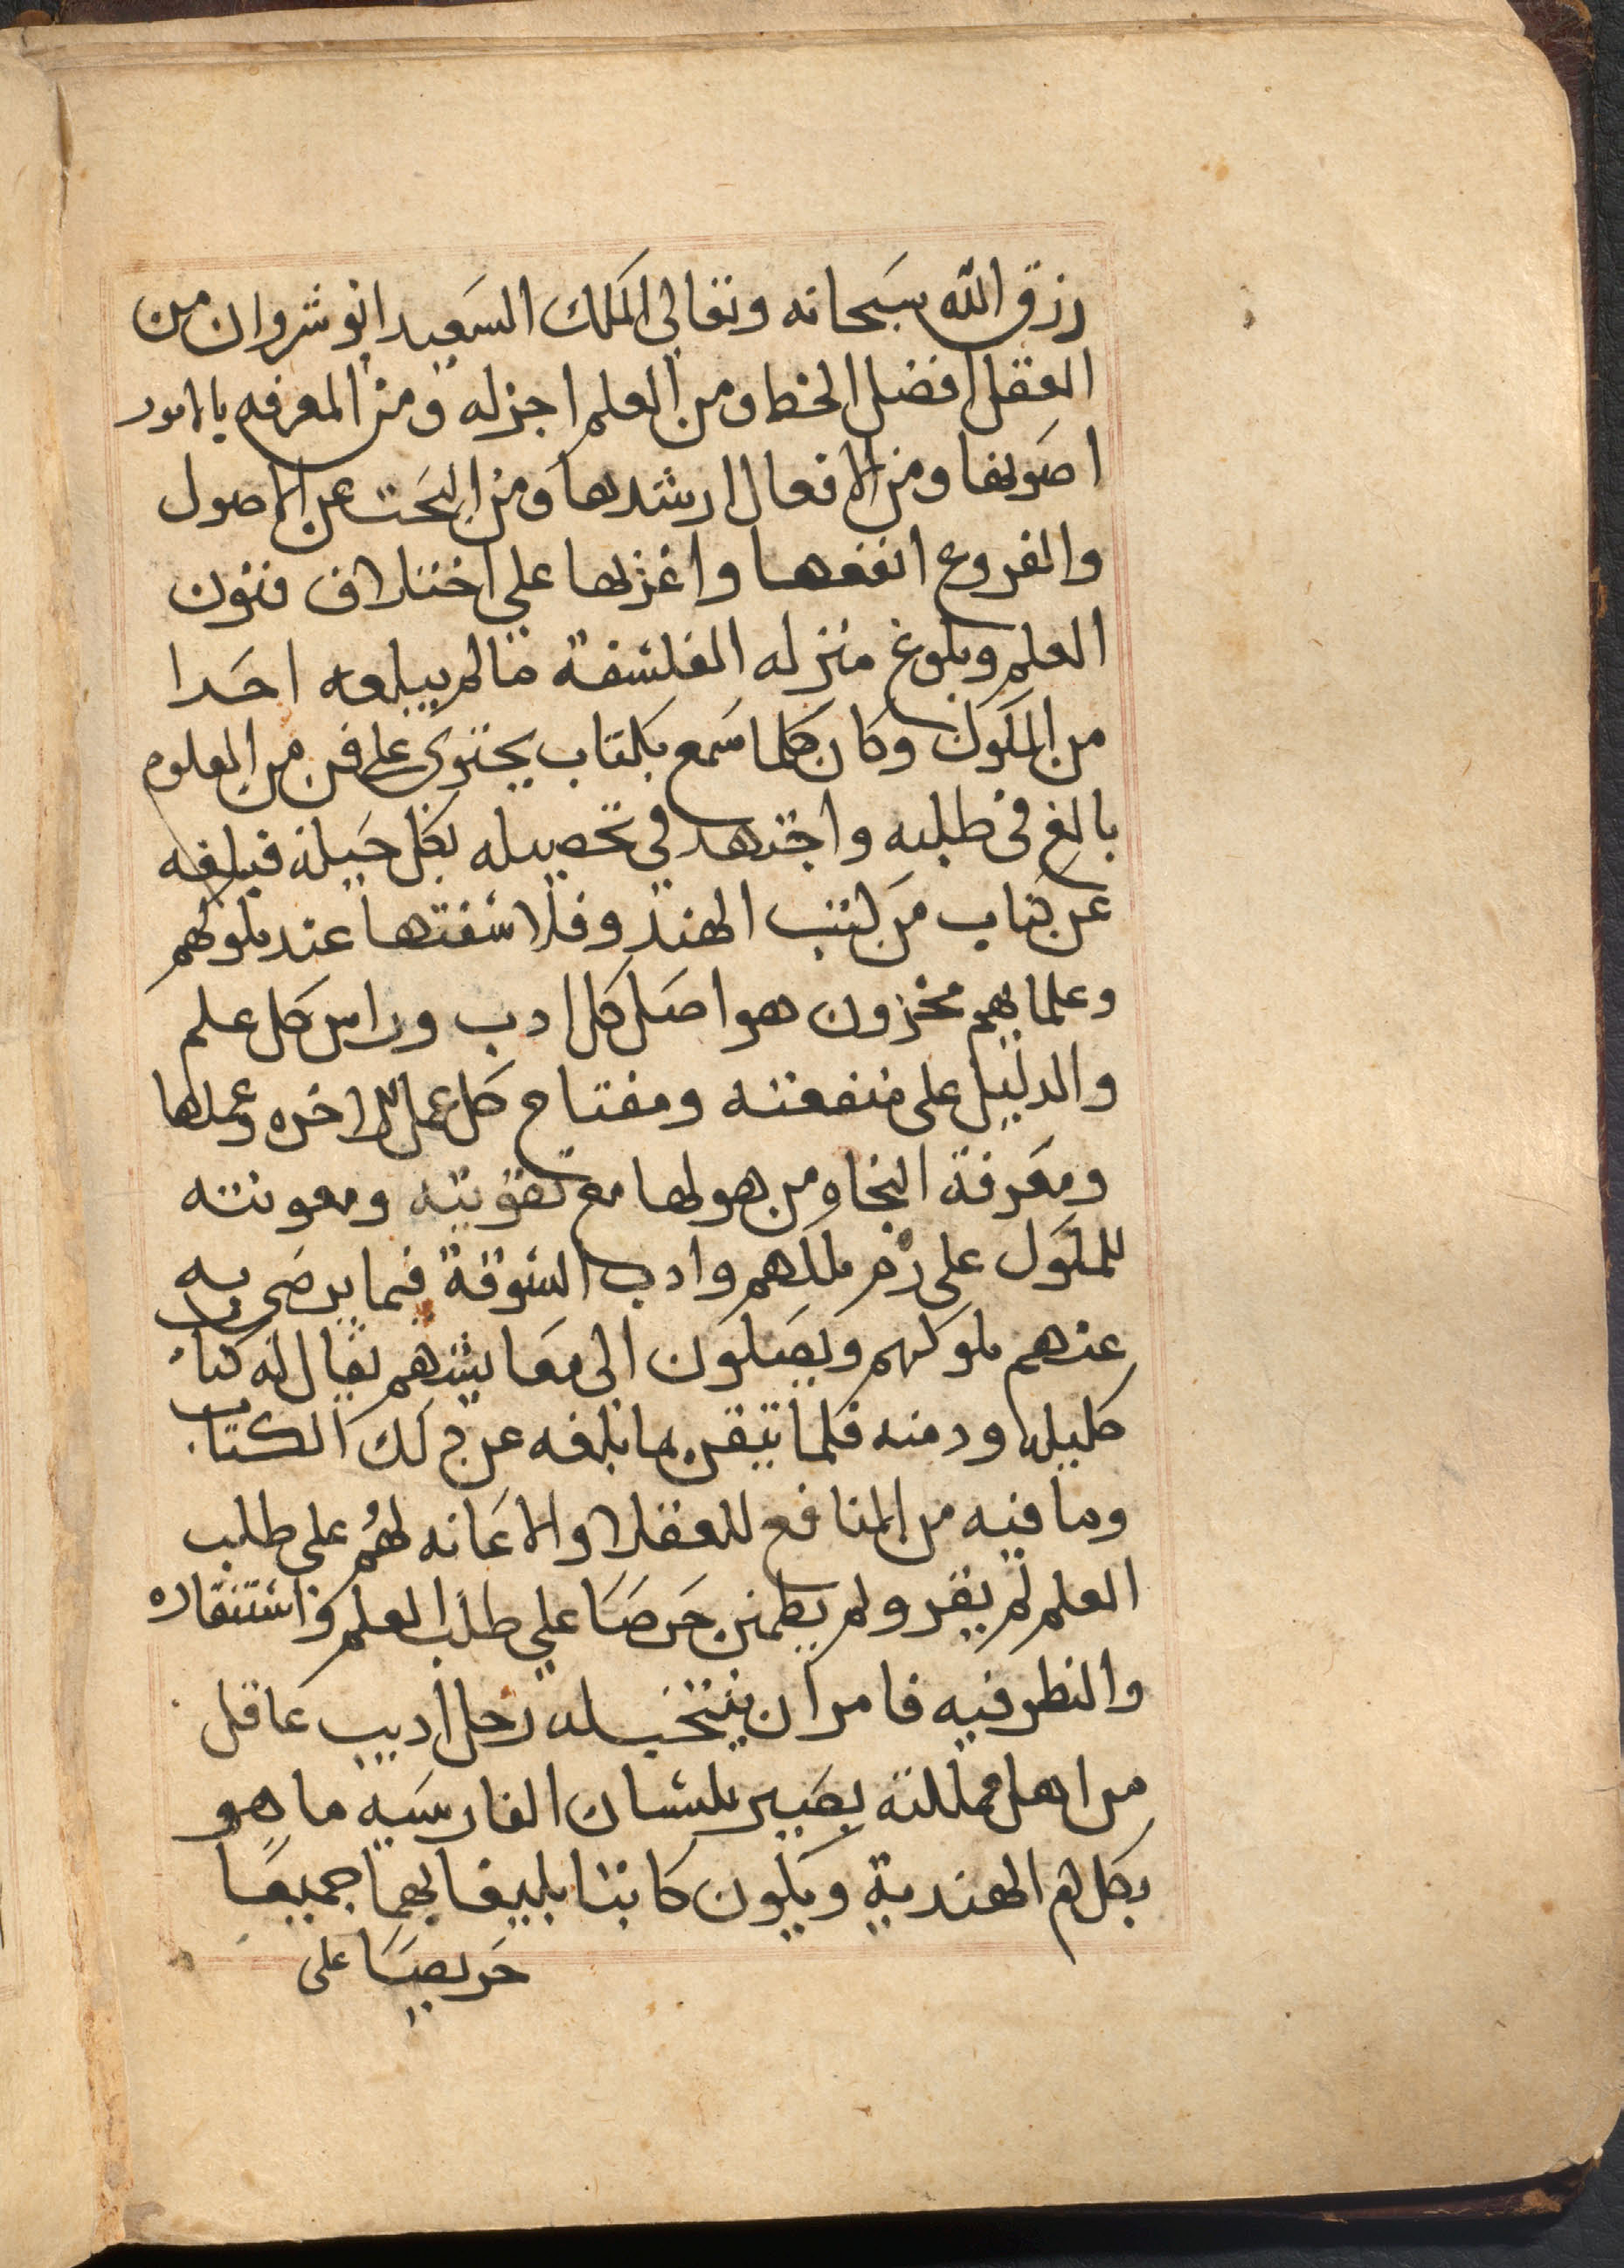 رزق الله سبحانه وتعالى الملك السعيد انوشروان من
العقل افضل الحظ ومن العلم اجزله ومن المعرفه بالامور
اصوبها ومن الافعال ارشدها ومن البحث عن الاصول
والفروع انفعها واغزلها علي اختلاف فنون
العلم وبلوغ منزله الفلسفة مالم يبلغه احدا
من الملوك وكان كلما سمع بكتاب يحتوى على فن من العلوم
بالغ فى طلبه واجتهد في تحصيله بكل حيلة فبلغه
عن كتاب من كتب الهند وفلاسفتها عند ملوكهم
وعلمايهم مخزون هو اصل كل ادب وراس كل علم
والدليل على منفعته ومفتاح كل عمل للاخره وعملها
ومعرفة النجاه من هولها مع تقويته ومعونته
للملوك على ملكهم وادب السوقة فيما يرضى به
عنهم ملوكهم ويصلون الى معايشهم يقال له كتاب
كليله ودمنه فلما تيقن ما بلغه عن ذلك الكتاب
وما فيه من المنافع للعقلا والاعانه لهم على طلب
العلم لم يقر ولم يطمئن حرصا علي طلب العلم واستنقاره
والنظر فيه فامر ان ينتخب له رجل اديب عاقل
من اهل مملكته بصير بلسان الفارسيه ماهو
بكلام الهندية ويكون كاتبا بليغا بهما جميعا
حريصا على